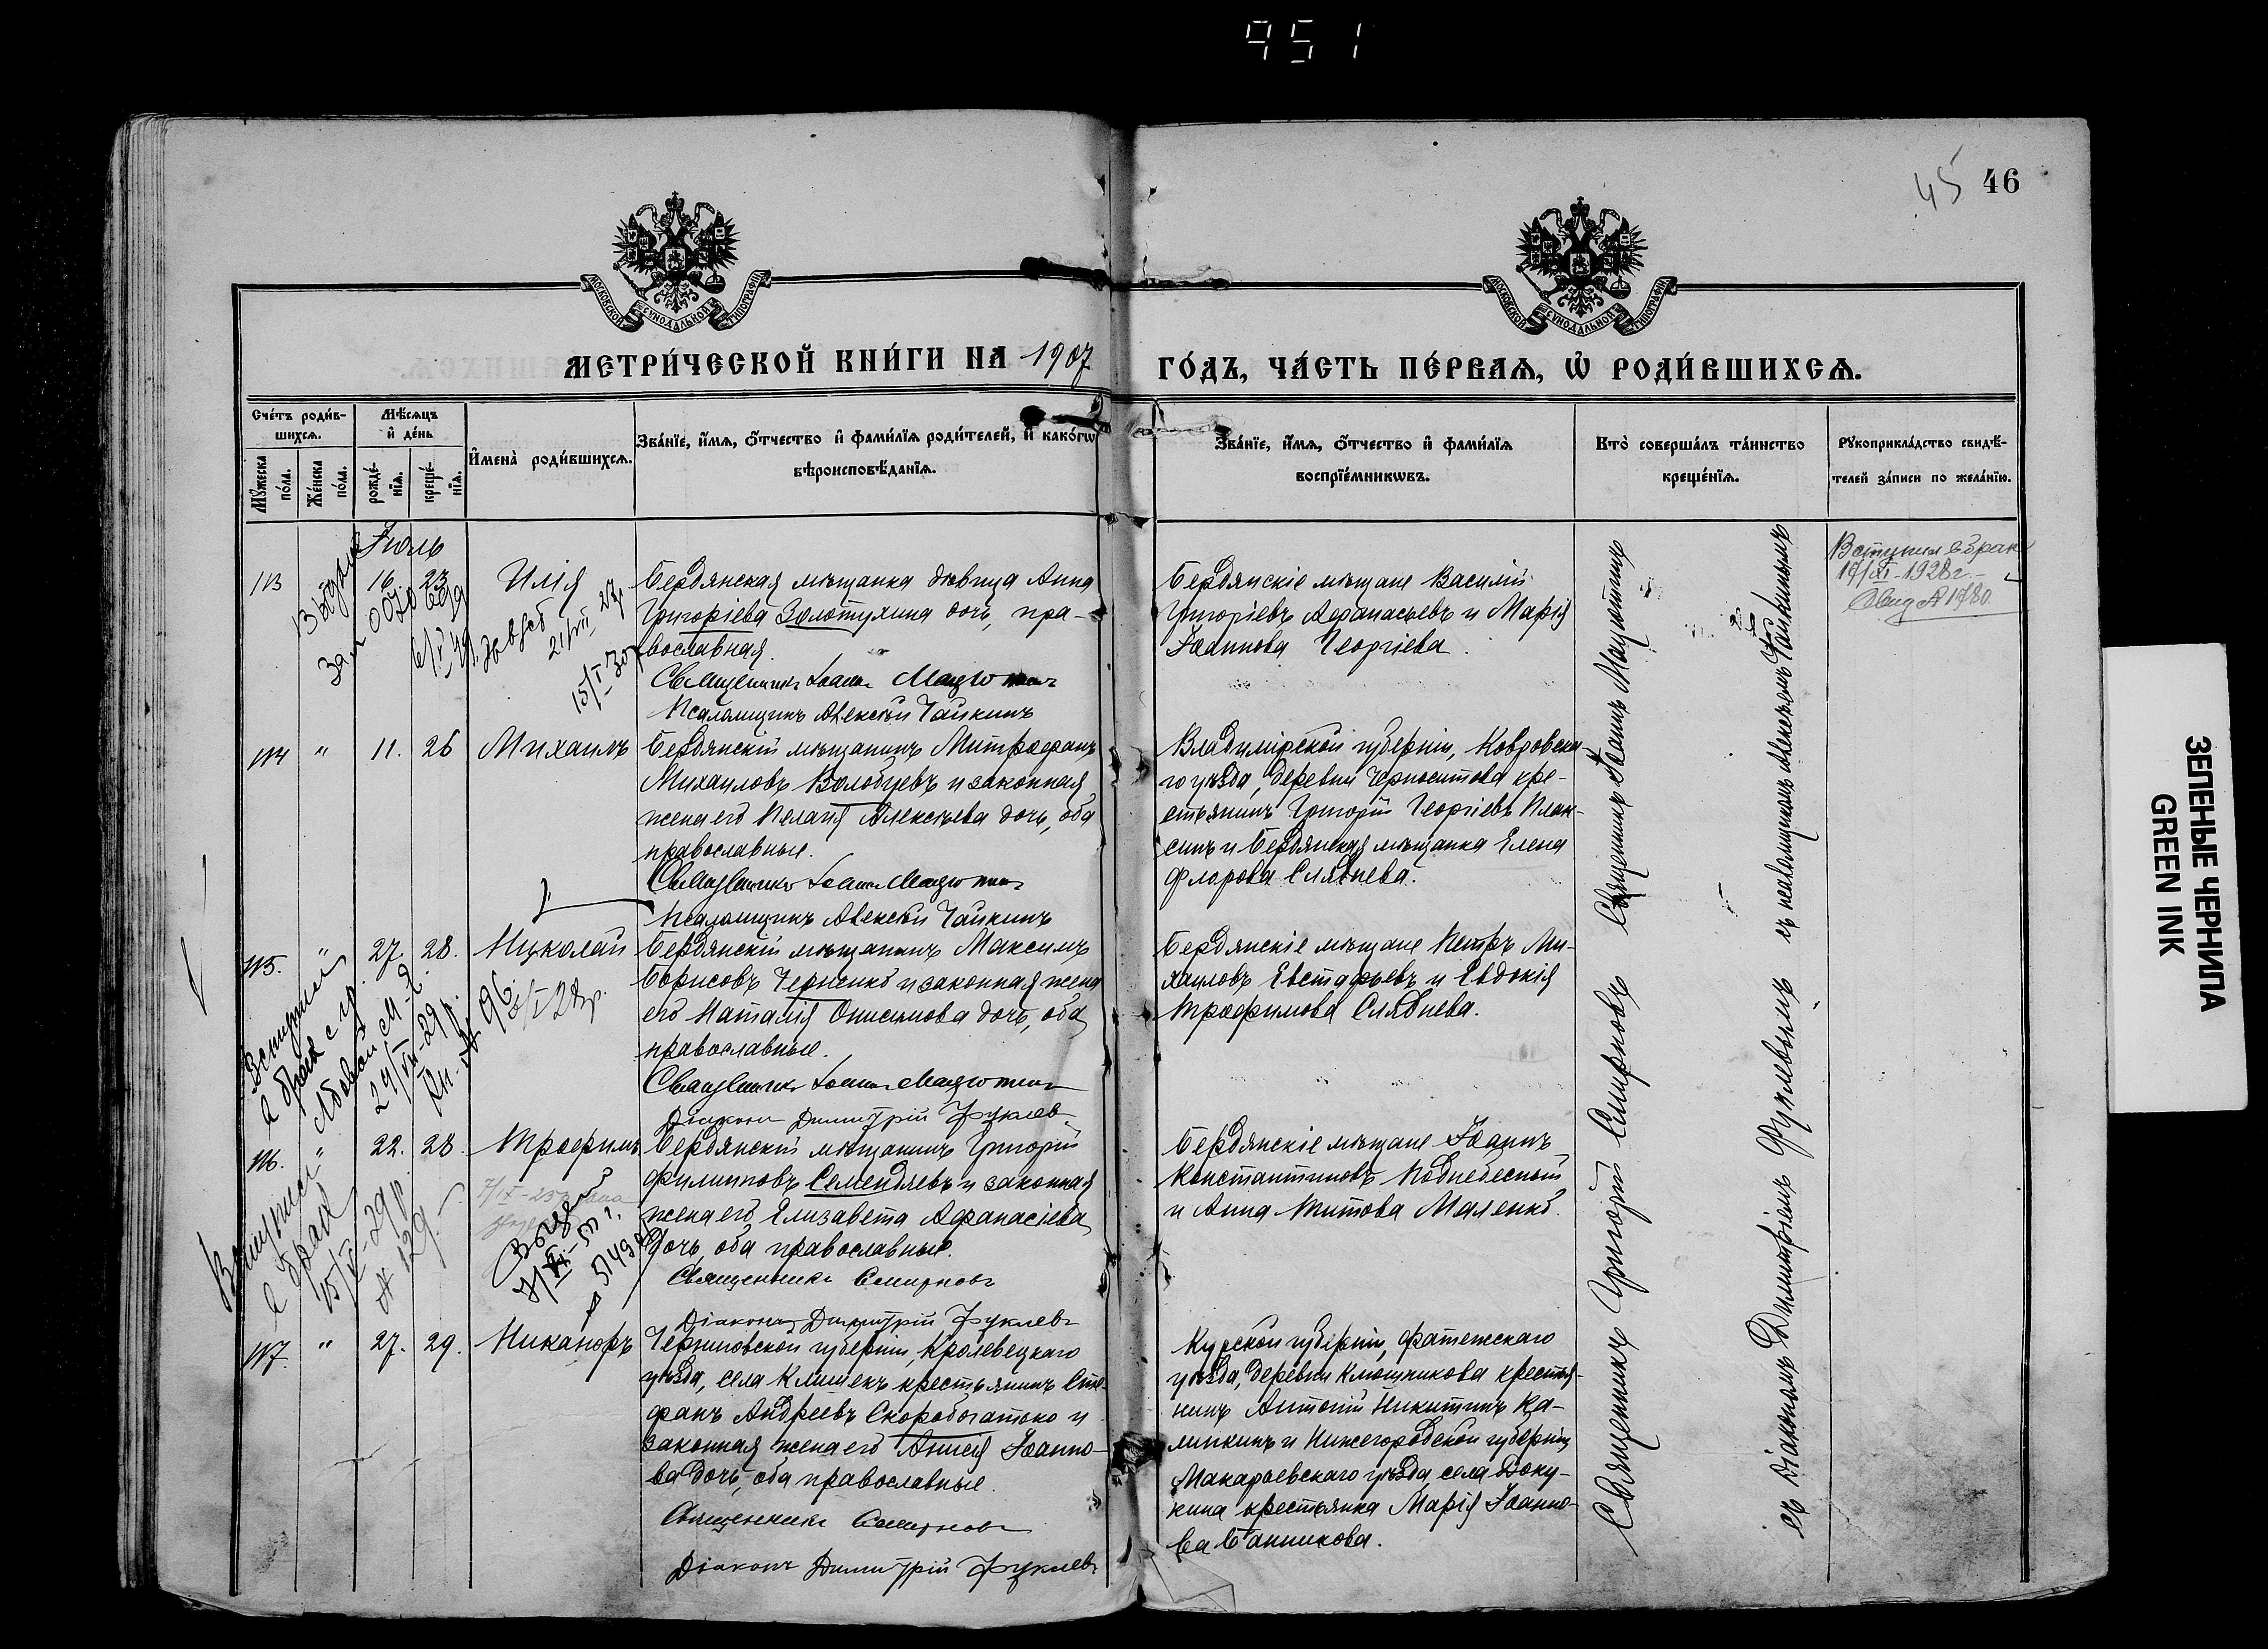 951
45 46
МОСКОВСКОЙ СѴНОДАЛЬНОЙ ТИПОГРАФІИ
МОСКОВСКОЙ СѴНОДАЛЬНОЙ ТИПОГРАФІИ
МЕТРИ́ЧЕСКОЙ КНИ́ГИ НА 1907 ГО́ДЪ, ЧА́СТЬ ПЕ́РВАѦ, Ѡ҆ РОДИ́ВШИХСѦ.
Сче́тъ роди́в-
шихсѧ.
Мꙋ́жеска
по́ла.
Же́нска
по́ла.
Мѣ́сѧцъ
и҆ де́нь
рожде́-
нїѧ.
креще́-
нїѧ.
И҆мена̀ роди́вшихсѧ.
Зва́нїе, и҆́мѧ, ѻ҆́тчество и҆ фами́лїѧ роди́телей, и҆ како́гѡ
вѣроисповѣ́данїѧ.
Зва́нїе, и҆́мѧ, ѻ҆́тчество и҆ фами́лїѧ
воспрїе́мникѡвъ.
Кто̀ соверша́лъ та́инство
креще́нїѧ.
Рꙋкоприкла́дство свидѣ́-
телей за́писи по жела́нїю.
Іюль
113
16. 23
Илія
Бердянская мѣщанка дѣвица Анна
Григоріева Золотухина дочь, пра-
вославная.
Священникъ Іоаннъ
Псаломщикъ Алексѣй Чайкинъ
Бердянскіе мѣщане Василій
Григоріевъ Афанасьевъ и Марія
Іоаннова Георгіева.
Вступил в брак
1928 г.
114 " 11. 26 Михаилъ
Бердянскій мѣщанинъ Митрофанъ
Михаиловъ Волобуевъ и законная
жена его Пелагія Алексѣева дочь, оба
православные.
Священникъ Іоаннъ
Псаломщикъ Алексѣй Чайкинъ
Владимірской губерніи, Ковровска-
го уѣзда, деревни кре-
стьянинъ Григорій Георгіевъ
и Бердянская мѣщанка Елена
Флорова Сляднева.
115. " 27. 28. Николай
Бердянскій мѣщанинъ Максимъ
Борисовъ Черненко и законная жена
его Наталія Онисимова дочь, оба
православные.
Священникъ Іоаннъ
Діаконъ Димитрій Фуклевъ
Бердянскіе мѣщане Петръ Ми-
хаиловъ Евстафьевъ и Евдокія
Трофимова Сляднева.
Вступил
в брак с гр.
№ 96
116. " 22. 28. Трофимъ
Бердянскій мѣщанинъ Григорій
Филипповъ Семендяевъ и законная
жена его Елизавета Афанасіева
дочь, оба православные.
Священникъ Смирновъ
Діаконъ Димитрій Фуклевъ
Бердянскіе мѣщане Іоаннъ
Константиновъ Поднебесный
и Анна Титова Маленко.
Вступил
в брак
№ 129.
117. " 27. 29. Никаноръ
Черниговской губерніи, Кролевецкаго
уѣзда, села Клишекъ крестьянинъ Сте-
фанъ Андреевъ Скоробогатько и
законная жена его Анисія Іоанно-
ва дочь, оба православные.
Священникъ Смирновъ
Діаконъ Димитрій Фуклевъ
Курской губерніи, Фатежскаго
уѣзда, деревни Ключникова крестья-
нинъ Антоній Никитинъ Ка-
линкинъ и Нижегородской губерніи
Макарьевскаго уѣзда, села Доку-
кина крестьянка Марія Іоанно-
ва Банникова.
Священникъ Григорій Смирновъ
Священникъ Іоаннъ
съ діакономъ Димитріемъ Фуклевымъ
съ псаломщикомъ Алексѣемъ Чайкинымъ
ЗЕЛЕНЫЕ ЧЕРНИЛА
GREEN INK